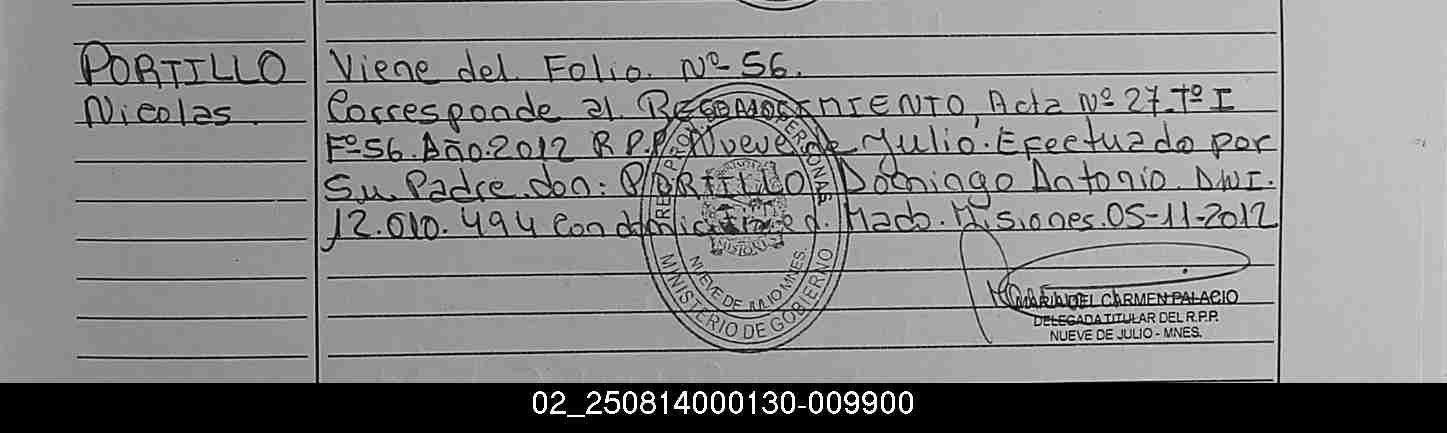 PORTILLO
Nicolas.
Viene del Folio. Nº 56.
Corresponde al RECONOCIMIENTO, Acta Nº 27. Tº I
Fº 56. Año. 2012 R.P.P. Nueve de Julio. Efectuado por
Su Padre don: PORTILLO Domingo Antonio. DNI.
12.010.494 Con domicilio en Mado. Misiones. 05-11-2012
MINISTERIO DE GOBIERNO
NUEVE DE JULIO MNES.
MISIONES
MARIA DEL CARMEN PALACIO
DELEGADA TITULAR DEL R.P.P.
NUEVE DE JULIO - MNES.
02_250814000130-009900